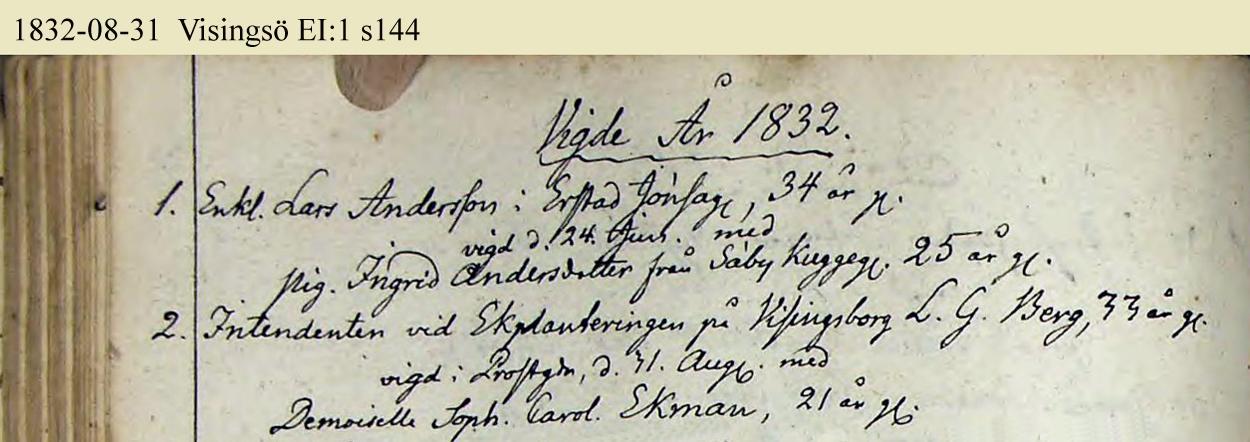 1832-08-31 Visingsö EI:1 s144
Vigde År 1832.
1. Enkl. Lars Andersson i Erstad Jonsag, 34 år gl.
vigd d. 24. Juni. med
pig. Ingrid Andersdotter från Säby Kuggegl. 25 år gl.
2. Intendenten vid Ekplanteringen på Visingsborg L. G. Berg, 33 år gl.
vigd i Prostgdn, d. 31. Aug. med
Demoiselle Soph. Carol. Ekman, 21 år gl.